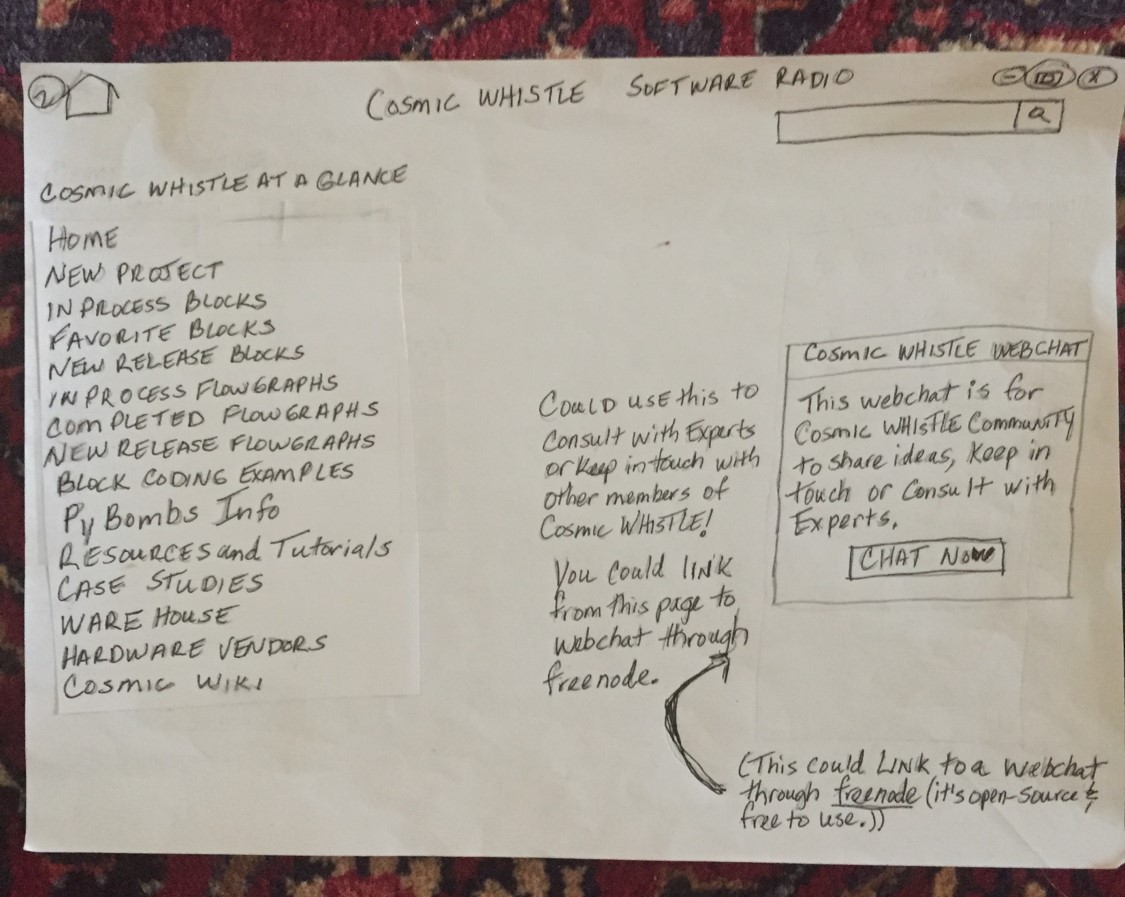 2
COSMIC WHISTLE SOFTWARE RADIO
COSMIC WHISTLE AT A GLANCE
HOME
NEW PROJECT
IN PROCESS BLOCKS
FAVORITE BLOCKS
NEW RELEASE BLOCKS
IN PROCESS FLOWGRAPHS
COMPLETED FLOWGRAPHS
NEW RELEASE FLOWGRAPHS
BLOCK CODING EXAMPLES
Py Bombs Info
RESOURCES and Tutorials
CASE STUDIES
WARE HOUSE
HARDWARE VENDORS
COSMIC WIKI
COULD USE this to
Consult with Experts
or keep in touch with
other members of
Cosmic WHISTLE!
You could link
from this page to
webchat through
freenode.
COSMIC WHISTLE WEBCHAT
This webchat is for
Cosmic WHISTLE Community
to share ideas, keep in
touch or consult with
Experts.
CHAT NOW
(This could LINK to a webchat
through freenode (it's open-source &
free to use.))